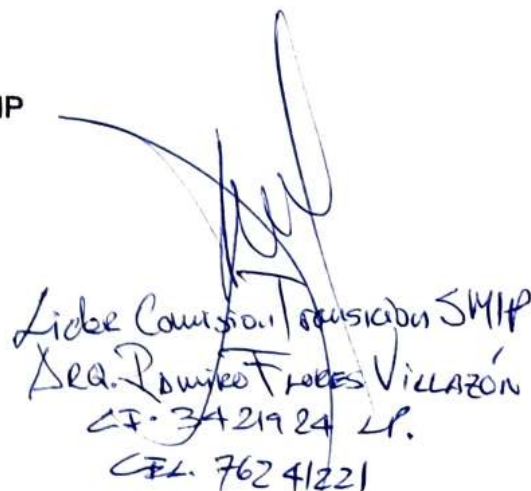 IP
Lider Comision Transicion SMIP
ARQ. RAMIRO FLORES VILLAZÓN
CI. 3421924 LP.
CEL. 76241221